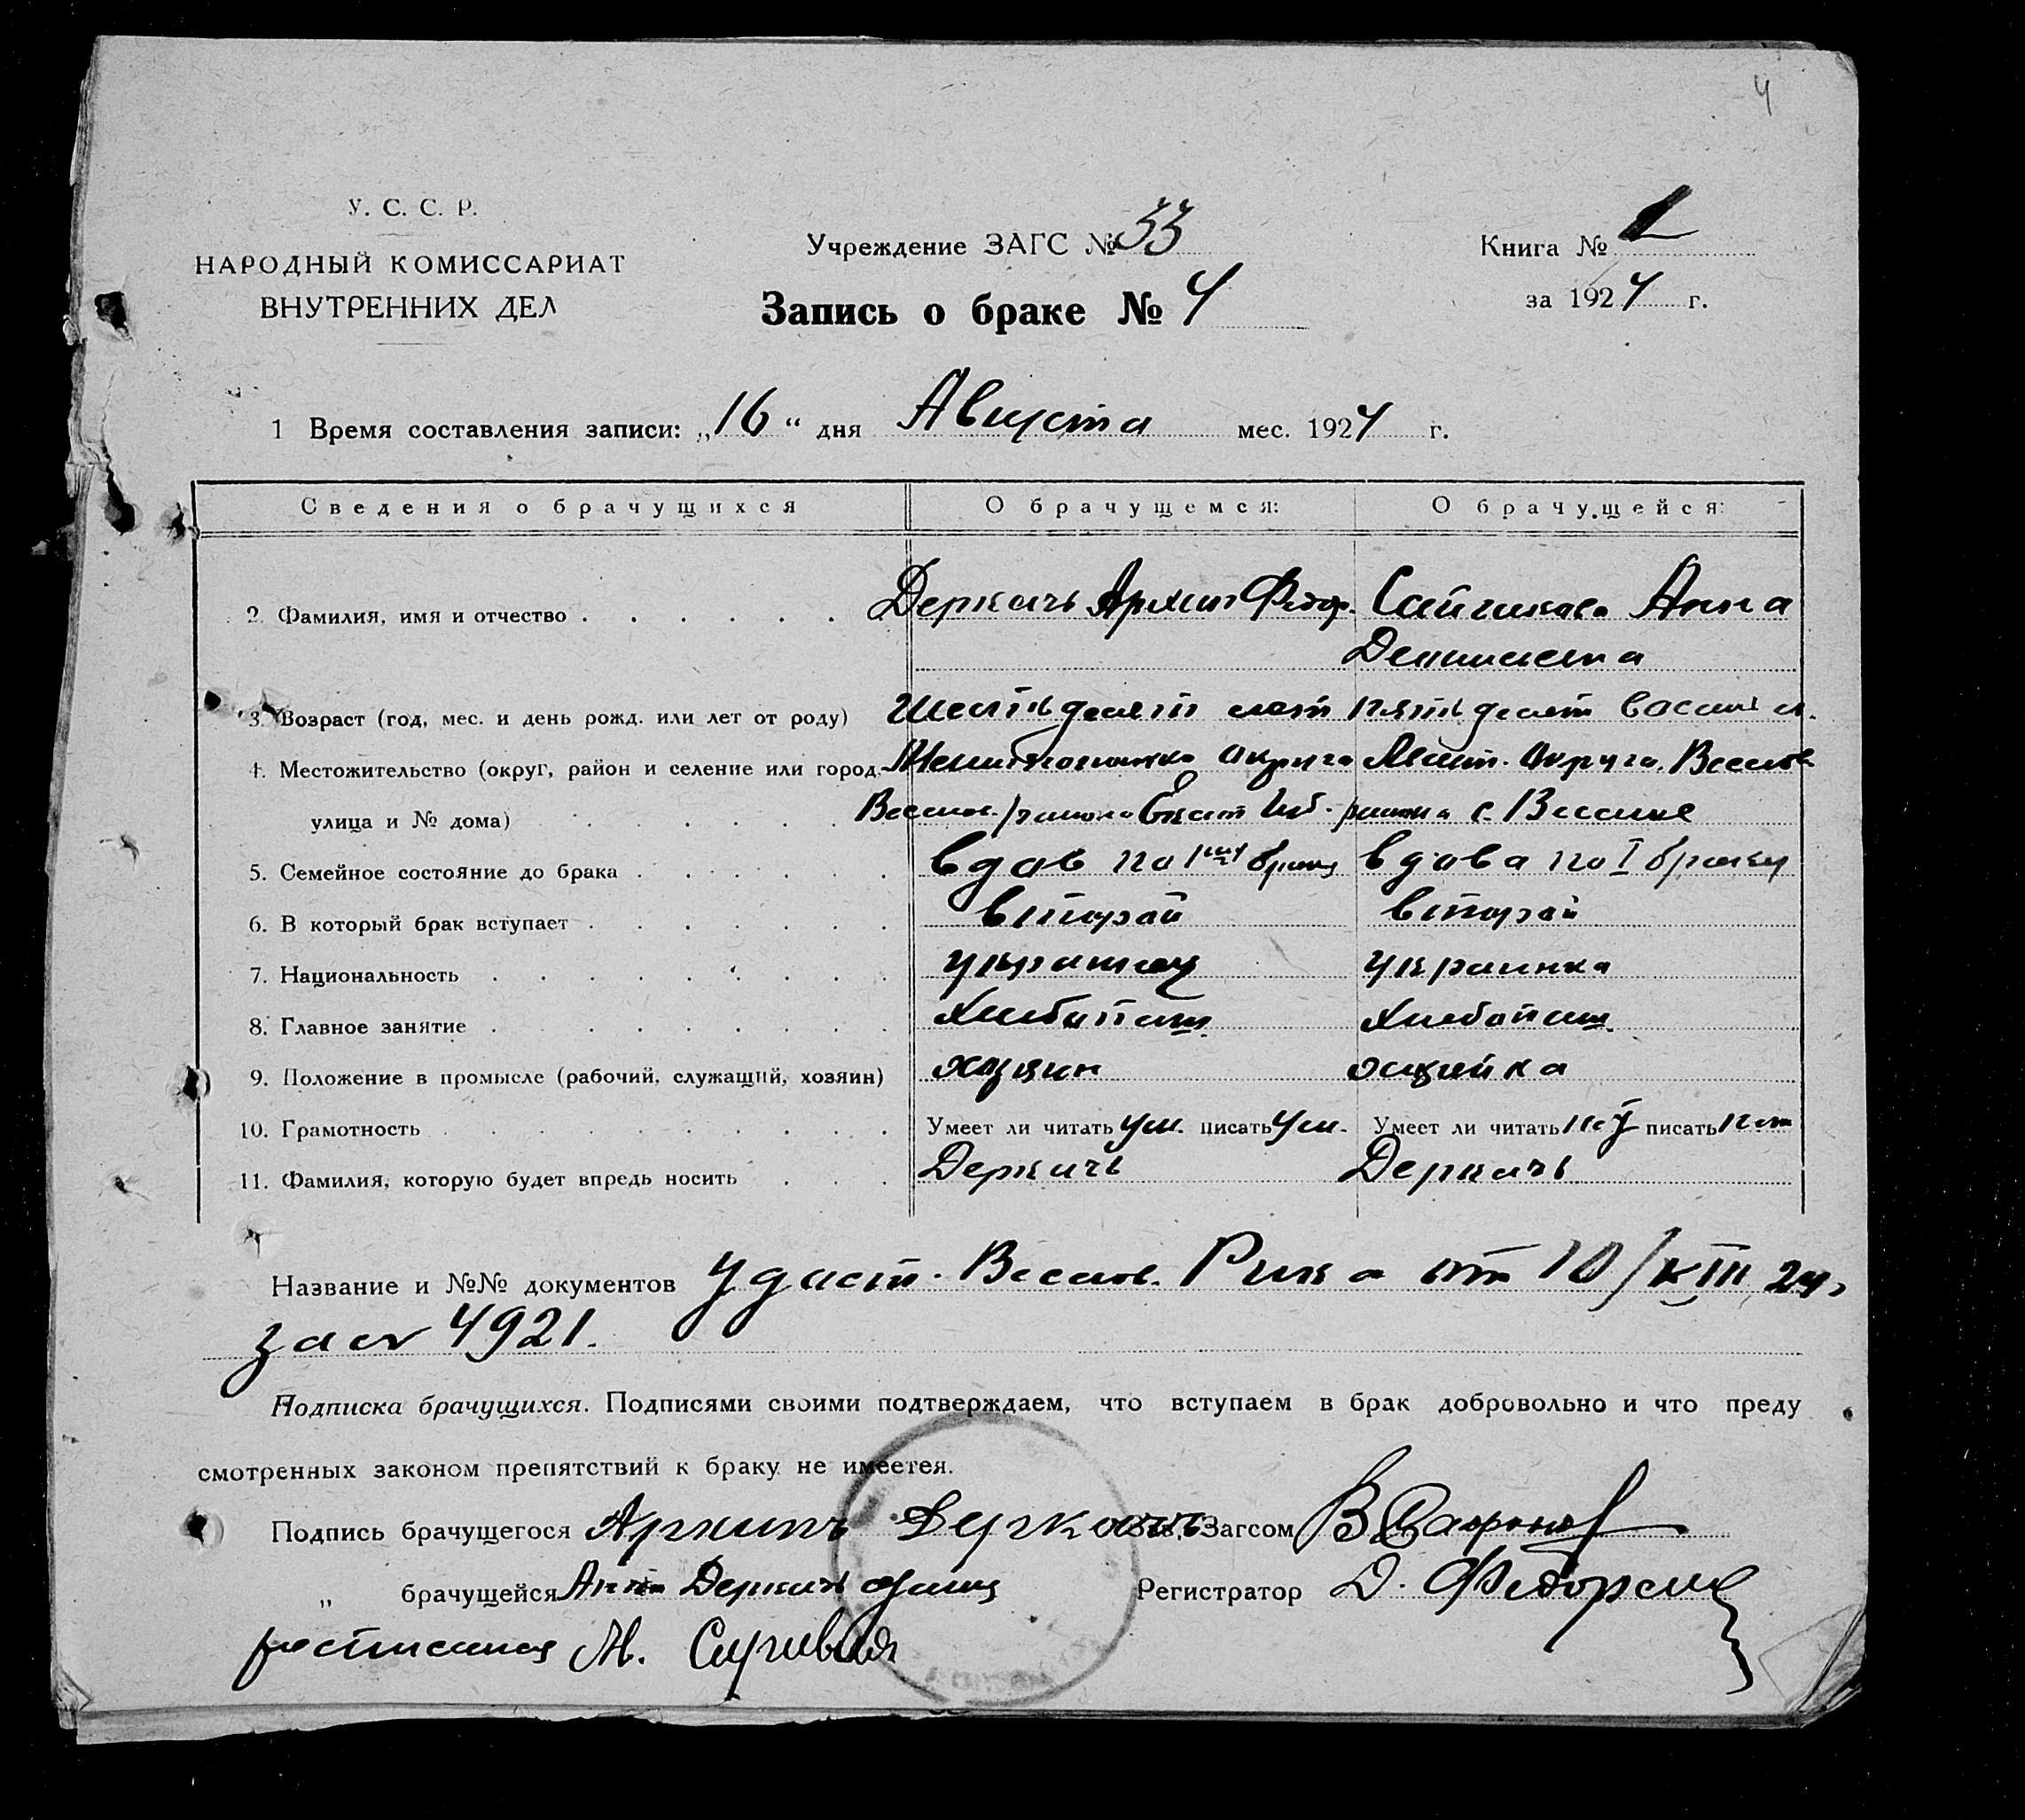 4
У. С. С. Р.
НАРОДНЫЙ КОМИССАРИАТ
ВНУТРЕННИХ ДЕЛ
Учреждение ЗАГС № 33
Запись о браке № 4
Книга № 1
за 1924 г.
1 Время составления записи: „16“ дня Августа мес. 1924 г.
Сведения о брачущихся О брачущемся: О брачущейся:
2. Фамилия, имя и отчество Деркачь Архип Федор. Анна
3. Возраст (год, мес. и день рожд. или лет от роду) шестьдесят лет пятьдесят восим л.
4. Местожительство (округ, район и селение или город, округа Мелит. Округа. Весело
улица и № дома) Весилов. района Екат губ. района с. Веселое
5. Семейное состояние до брака вдов по браку вдова по I браку
6. В который брак вступает второй второй
7. Национальность украинец украинка
8. Главное занятие Хлебопаш. Хлебопаш.
9. Положение в промысле (рабочий, служащий, хозяин) хозяин
10. Грамотность Умеет ли читать ум. писать ум. Умеет ли читать писать нет
11. Фамилия, которую будет впредь носить Деркачь Деркачь
Название и №№ документов удост. Веселов. Рика от 10/VIII 24г
за № 4921.
Подписка брачущихся. Подписями своими подтверждаем, что вступаем в брак добровольно и что преду
смотренных законом препятствий к браку не имеетея.
Подпись брачущегося Архипъ Деркачь Зав. Загсом В. Сафонов
„ брачущейся Анна Деркачь Регистратор Д.
М.